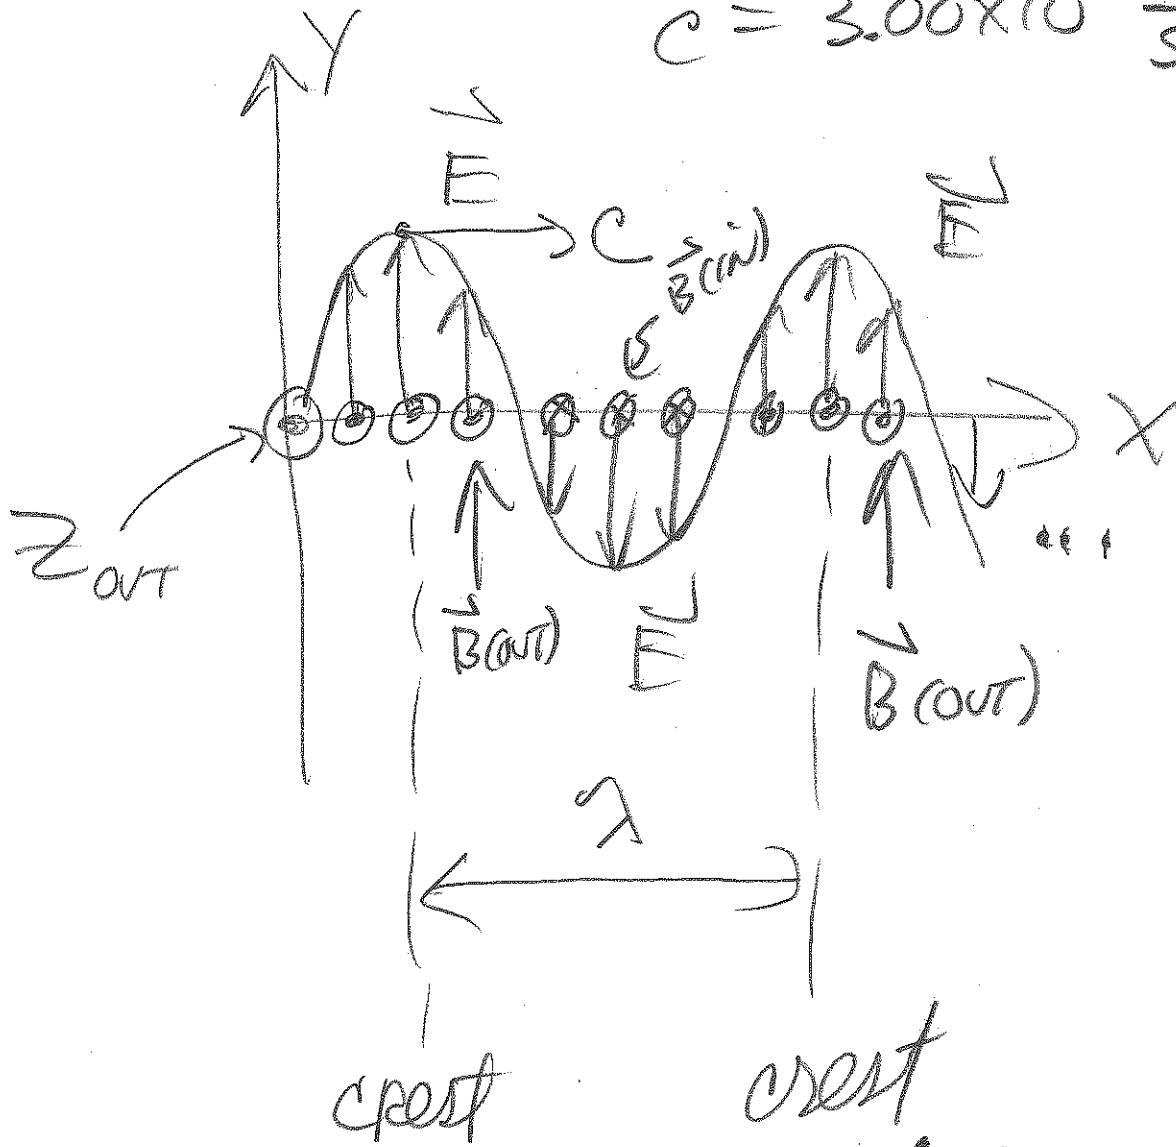 C = 3.00×10
Y
E
E
C
B(in)
X
Z OUT
...
B(OUT)
E
B (OUT)
λ
crest
crest